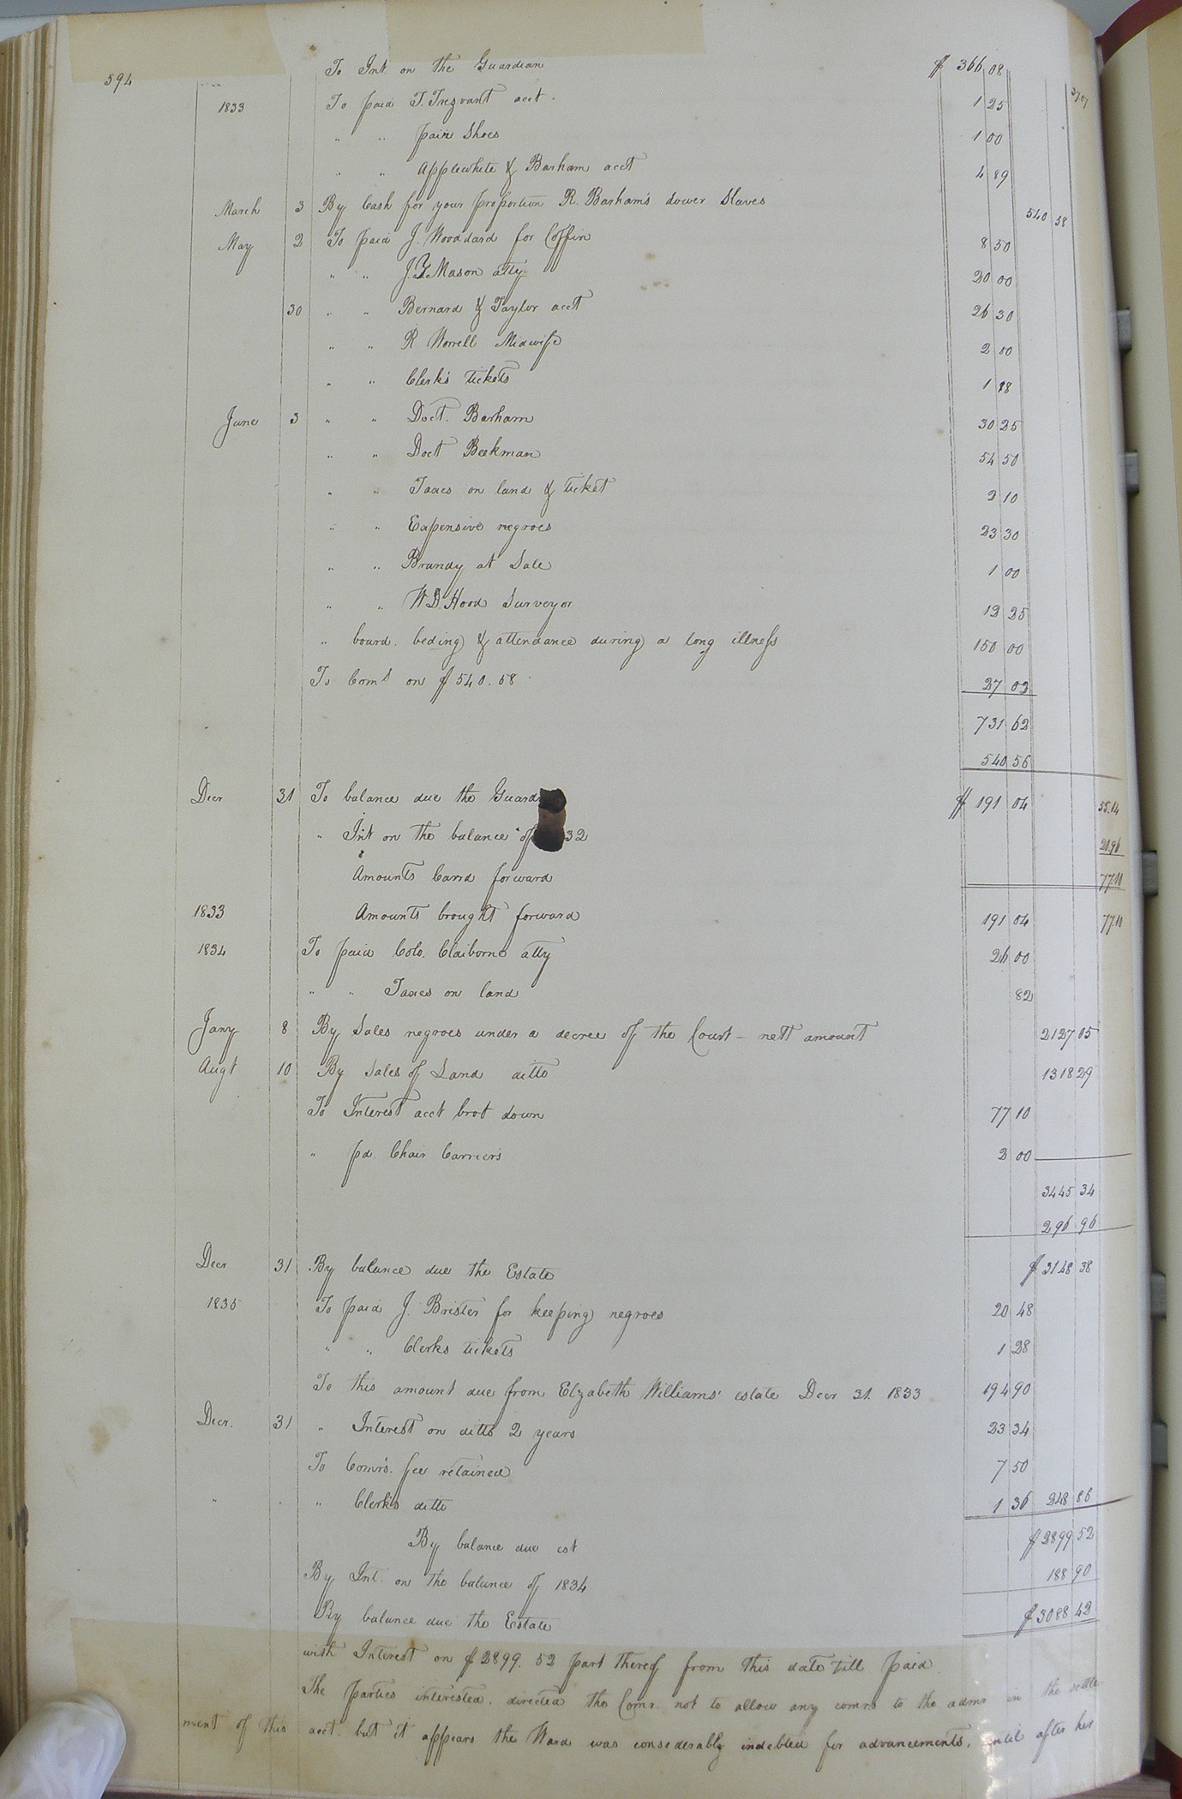 594
To Int on the Guardian $ 366 08
1833 To paid T. Trezvant acct. 1 25 37 07
" " pair shoes 1 00
" " Applewhite & Barham acct 4 89
March 3 By Cash for your proportion R. Barham's dower slaves 540 58
May 2 To paid J. Woodard for Coffin 8 50
" " J.Y. Mason atty 20 00
30 " " Bernard & Taylor acct 26 30
" " R Worrell Midwife 2 00
" " Clerk's tickets 1 88
June 3 " " Doct. Barham 30 25
" " Doct Beekman 54 50
" " Taxes on land & ticket 2 10
" " Expensive negroes 23 30
" " Brandy at Sale 1 00
" " W.D. Hood Surveyor 12 25
" board. beding & attendance during a long illness 150 00
To Comt on $540.58 27 02
731 62
540 56
Decr 31 To balance due the Guard $ 191 04 55.14
" Int on the balance of 32 21.96
Amounts Carrd forward 77.10
1833 Amounts brought forward 191 04 77.10
1834 To paid Colo. Claiborne atty 26 00
" " Taxes on land 82
Jany 8 By Sales negroes under a decree of the Court - nett amount 2127 05
Augt 10 By Sales of Land ditto 1318 29
To Interest acct brot down 77 10
" pd. Chain Carriers 2 00
3445 34
296 96
Decr 31 By balance due the Estate $ 3148 38
1835 To paid J. Brister for keeping negroes 20 48
" " Clerks tickets 1 28
To this amount due from Elzabeth Williams' estate Decr 31. 1833 194 90
Decr. 31 " Interest on ditto 2 years 23 34
To Comrs. fee retained 7 50
" " " Clerks ditto 1 36 248 86
By balance due est $ 2899 52
By Int on the balance of 1834 188 90
By balance due the Estate $ 3088 42
with Interest on $2899.52 part thereof from this date till paid
The parties interested. directed the Comr. not to allow any comrs to the admr in the settle-
ment of this acct. but it appears the Ward was considerably indebted for advancements, until after her